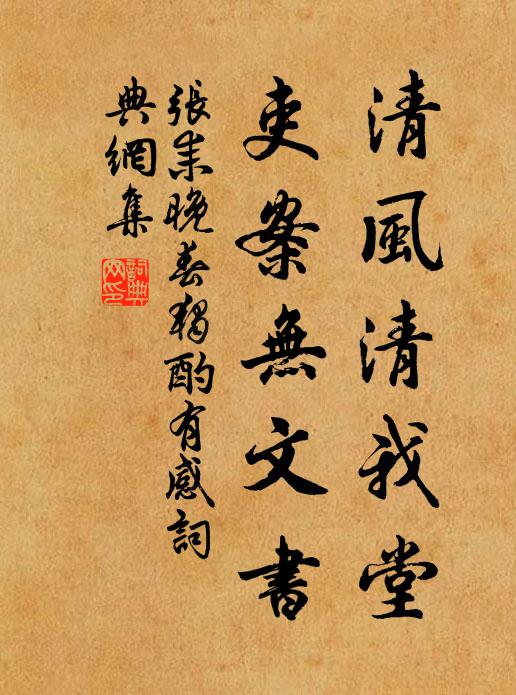 清風清我堂
吏案無文書
張耒晚春獨酌有感詞
典網集
詞典
网印